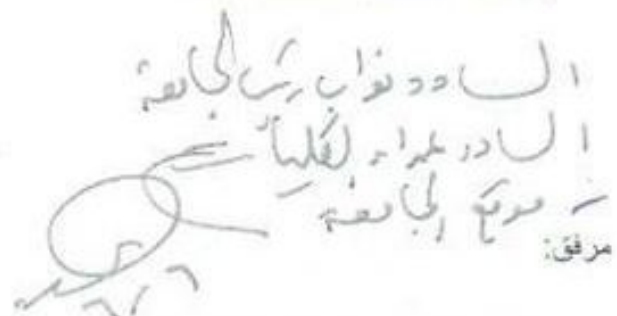 السادة نواب رئيس الجامعة
السادة عمداء الكليات
موقع الجامعة
مرفق: